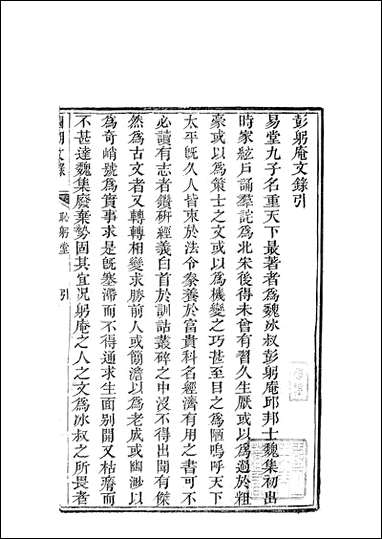 彭躬庵文錄引
易堂九子名重天下最著者為魏冰叔彭躬庵邱邦士魏集初出
時家絃戶誦羣詫為北宋後得未曾有習久生厭或以為過於粗
豪或以為策士之文或以為機變之巧甚至目之為陋嗚呼天下
太平既久人皆束於法令豢養於富貴科名經濟有用之書可不
必讀有志者鑽研經義白首於訓詁叢碎之中沒不得出閒有傑
然為古文者又轉轉相變求勝前人或簡澹以為老成或幽渺以
為奇峭號為實事求是既塞滯而不得通求生面別開又枯瘠而
不甚達魏集廢棄勢固其宜況躬庵之人之文為冰叔之所畏者
國朝文錄
恥躬堂 引